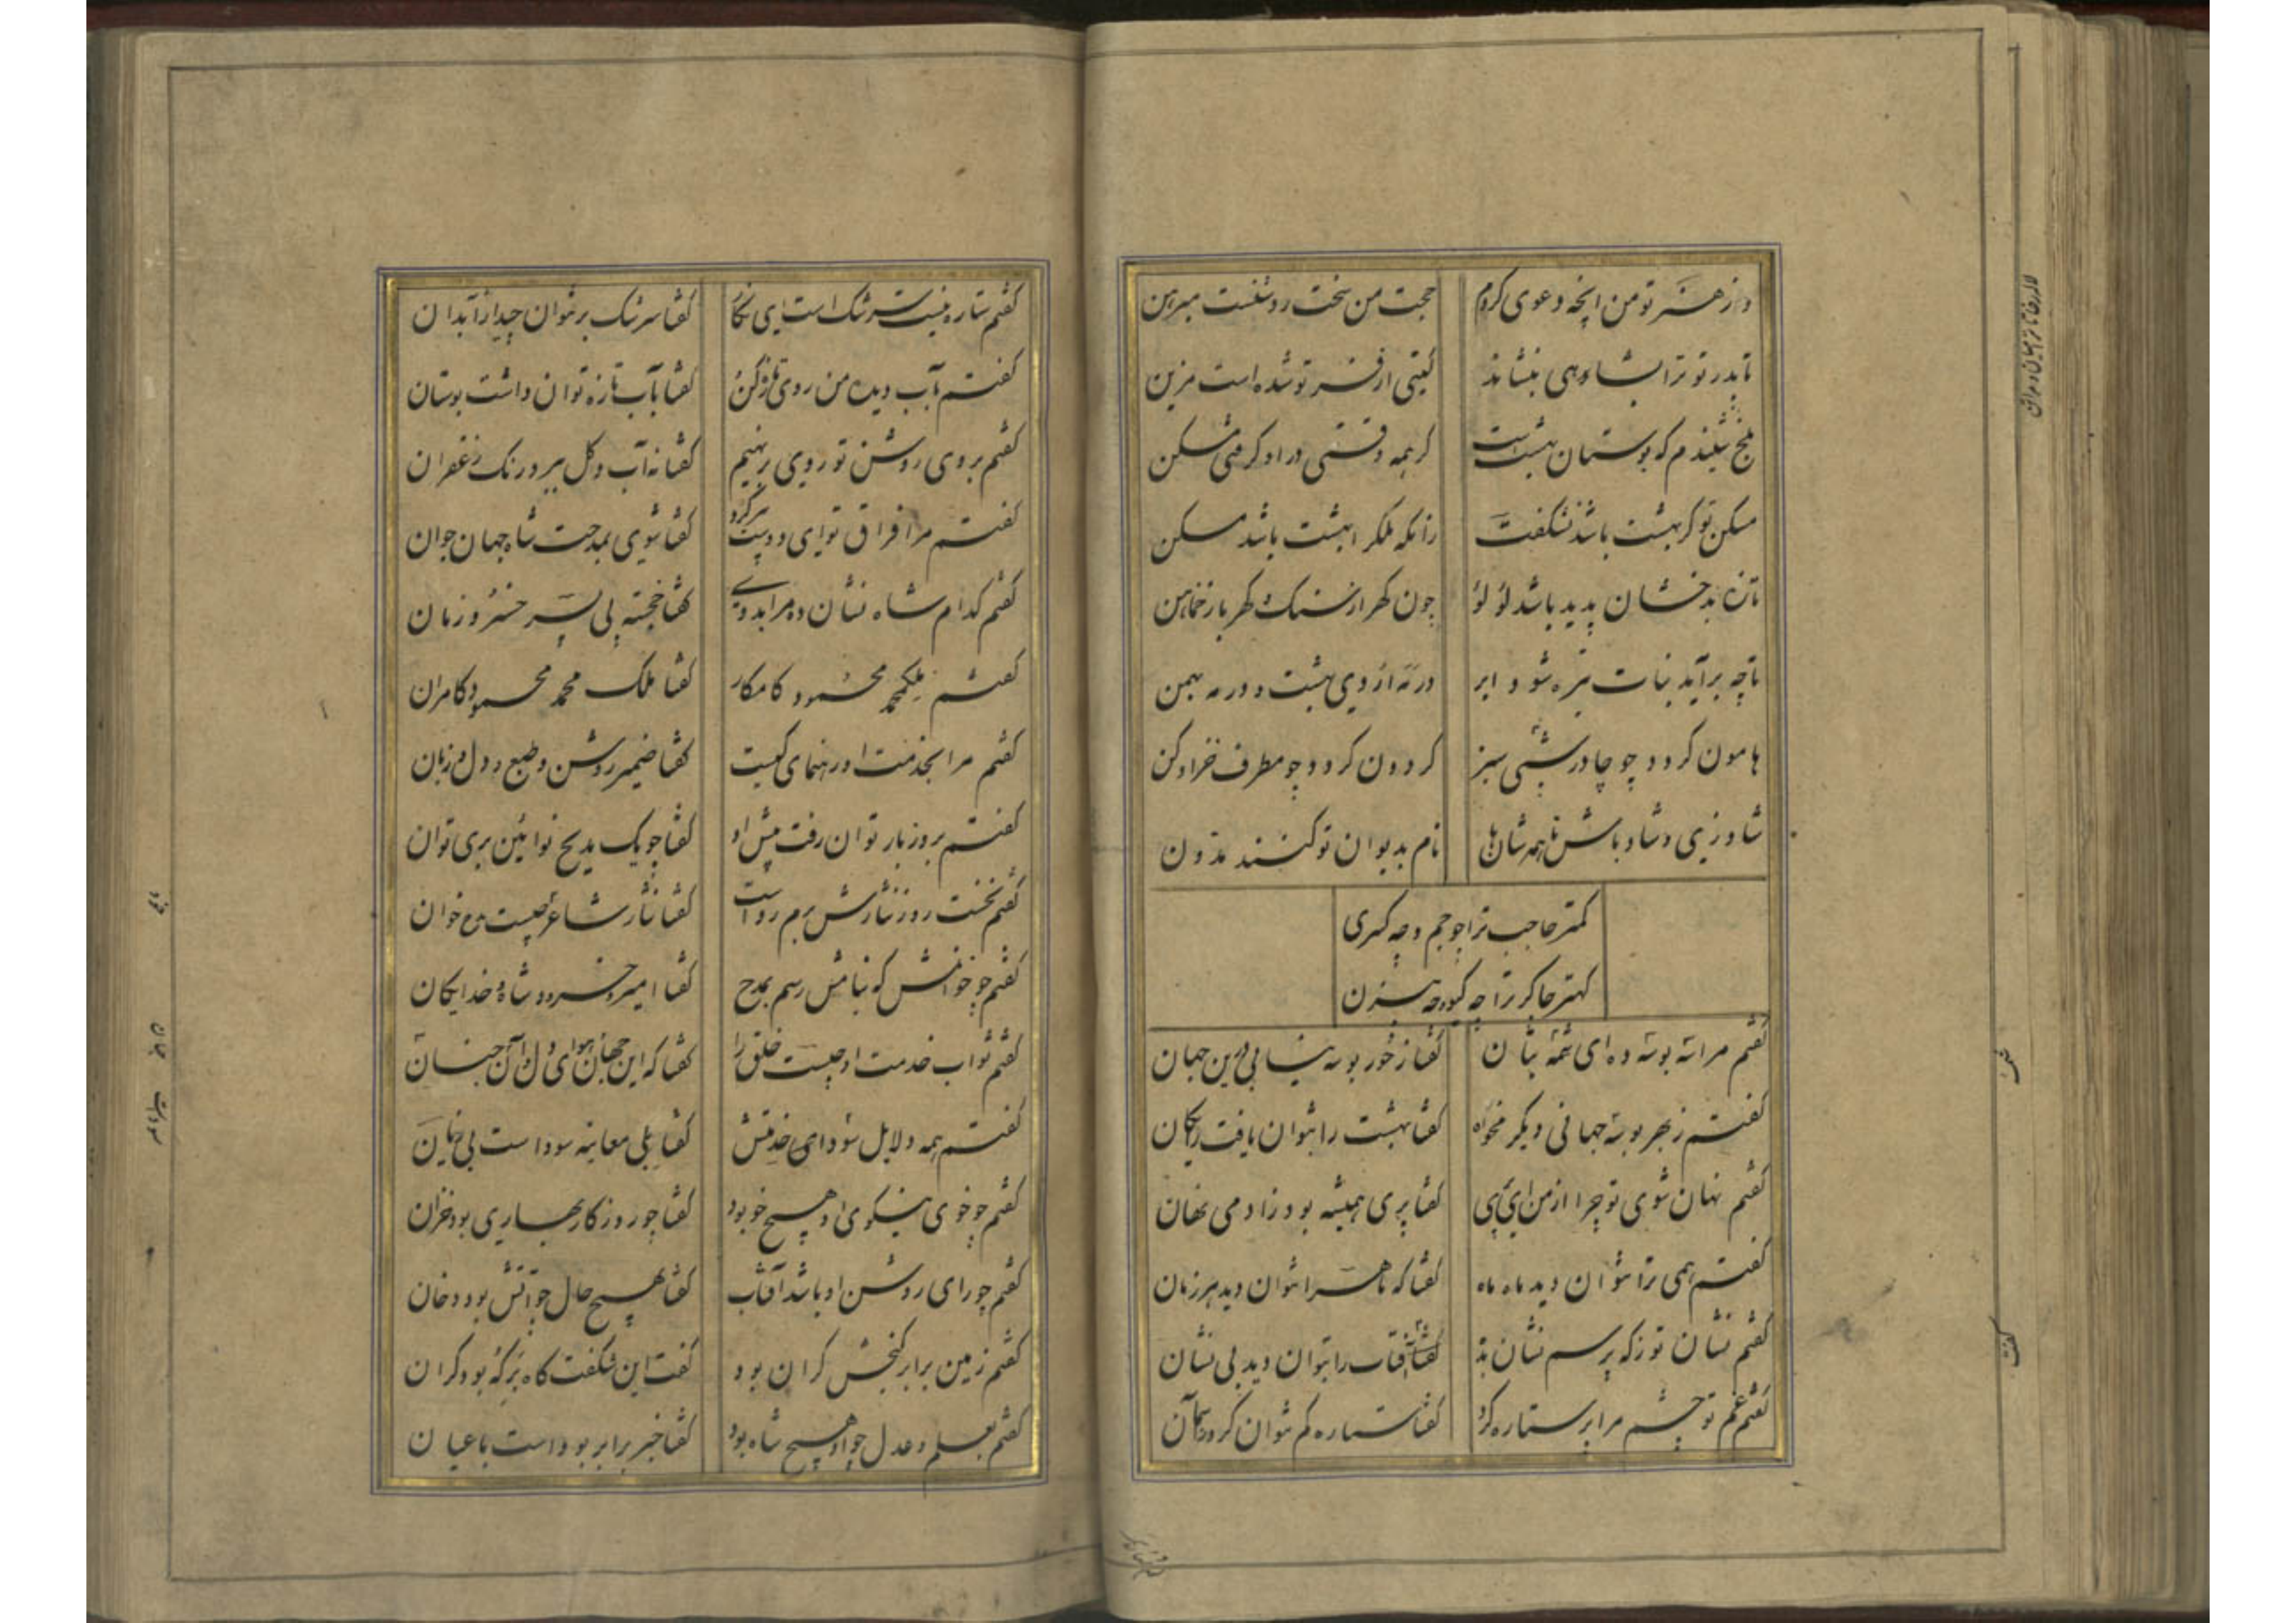 وز هنر تو من انچه دعوی کردم
حجت من سخت روشنست مبرهن
تا پدر تو ترا بشاهی بنشاند
گیتی از فر تو شده است مزین
بلخ شنیدم که بوستان بهشت است
مسکن تو گر بهشت باشد نشگفت
زانکه ملک را بهشت باشد مسکن
تا ز بدخشان پدید باشد لؤلؤ
چون گهر از سنگ و کهربا ز خماهن
هامون گردد چو چادر وشی سبز
گردون گردد چو مطرف خز ادکن
شاد زی و شاد باش تا همه شاهان
نام بدیوان تو کنند مدون
کمتر حاجب ترا چو جم و چه کسری
کهتر چاکر ترا چه گیو و چه بیژن
گفتم مرا سه بوسه ده ای شمسه بتان
گفتا ز حور بوسه نیابی درین جهان
گفتم ز بهر بوسه جهانی دیگر مخواه
گفتا بهشت را نتوان یافت رایگان
گفتم نهان شوی تو چرا از من ای پری
گفتا پری همیشه بود ز آدمی نهان
گفتم همی ترا نتوان دید ماه ماه
گفتا که ماه را نتوان دید هر زمان
گفتم نشان تو ز که پرسم نشان بده
گفتا آفتاب را بتوان دید بی نشان
گفتم غم تو چشم مرا پر ستاره کرد
گفتا ستاره کم نتوان کرد ز آسمان
گفتم ستاره نیست سرشک است ای نگار
گفتا سرشک بر نتوان چید از آبدان
گفتم بآب دیده من روی تازه کن
گفتا بآب تازه توان داشت بوستان
گفتم بروی روشن تو روی بر نهیم
گفتا نه آب و گل ببرد رنگ زعفران
گفتم مرا فراق تو ای دوست پیر کرد
گفتا شوی بمدحت شاه جهان جوان
گفتم کدام شاه نشان ده مرا بدوی
گفتا خجسته پی پسر خسرو زمان
گفتم ملک محمد محمود کامکار
گفتا ملک محمد محمود کامران
گفتم مرا بخدمت او رهنمای کیست
گفتا ضمیر روشن و طبع و دل و زبان
گفتم بروز بار توان رفت پیش او
گفتا چو یک مدیح نو آئین بری توان
گفتم نخست روز نثارش برم رواست
گفتا نثار شاعر مدحست مدح خوان
گفتم چو خوانمش که بنامش رسم بمدح
گفتا امیر و خسرو و شاه و خدایگان
گفتم ثواب خدمت او چیست خلق را
گفتا که این جهان هوای دل و آن جنان
گفتم همه دلایل سودای خدمتش
گفتا بلی معاینه سود است بی زیان
گفتم چو خوی نیکوی او هیچ خو بود
گفتا چو روزگار بهاری بود خزان
گفتم چو رای روشن او باشد آفتاب
گفتا بهیچ حال چو آتش بود دخان
گفتم زمین برابر گنجش گران بود
گفت این شگفت کاه بر که بود گران
گفتم بعلم و عدل چو او هیچ شاه بود
گفتا خبر برابر بوده است با عیان